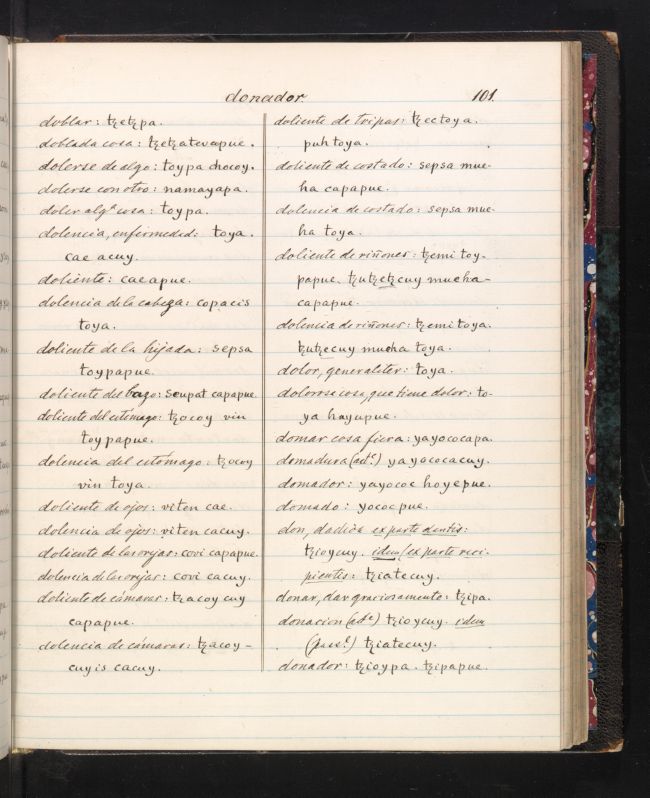 donador.
101.
doblar: tzetzpa.
doblada cosa: tzetzatevapue.
dolerse de algo: toypa chocoy.
dolerse con otro: namayapa.
doler algª cosa: toypa.
dolencia, enfermeded: toya.
cae acuy.
doliente: caeapue.
dolencia de la cabeza: copacis
toya.
doliente de la hijada: sepsa
toypapue.
doliente del bazo: seupat capapue.
doliente del estómago: tzocoy vin
toypapue.
dolencia del estómago: tzocoy
vin toya.
doliente de ojos: viten cae.
dolencia de ojos: viten cacuy.
doliente de las orejas: covi capapue.
dolencia de las orejas: covi cacuy.
doliente de cámaras: tzacoy cuy
capapue.
dolencia de cámaras: tzacoy-
cuyis cacuy.
doliente de tripas: tzectoya.
puh toya.
doliente de costado: sepsa mue-
ha capapue.
dolencia de costado: sepsa mue-
ha toya.
doliente de riñones: tzemi toy-
papue. tzutzetzcuy mucha-
capapue.
dolencia de riñones: tzemi toya.
tzutzecuy mucha toya.
dolor, generaliter: toya.
dolorosa cosa, que tiene dolor: to-
ya hayupue.
domar cosa fiera: yayococapa.
domadura (act.ᵉ) yayococacuy.
domador: yayococ hoyepue.
domado: yococpue.
don, dadiva ex parte dantis:
tzioycuy. idem (ex parte reci-
pientis: tziatecuy.
donar, dar graciosamente: tzipa.
donacion (act.ᵉ) tzioycuy. idem
(pass.ᵉ) tziatecuy.
donador: tzioypa. tzipapue.